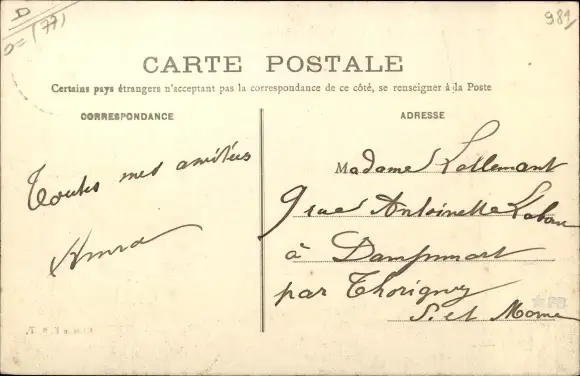 (77)
981
CARTE POSTALE
Certains pays étrangers n'acceptant pas la correspondance de ce côté, se renseigner à la Poste
CORRESPONDANCE
Toutes mes amitiés
ADRESSE
Madame Lallemant
9 rue Antoinette
à Dampmart
par Thorigny
S. et Marne
PB